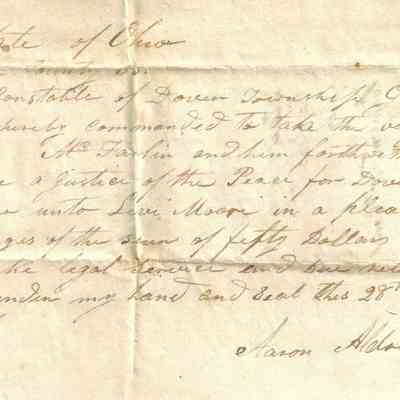 ate of Ohio
County ss.
Constable of Dover Township C
hereby commanded to take the bo
Mc Farlin and him forthwith
e a Justice of the Peace for Dove
e unto Levi Moore in a plea
ges of the sum of fifty Dollars
the legal service and due ret
under my hand and seal this 28th
Aaron Aldr